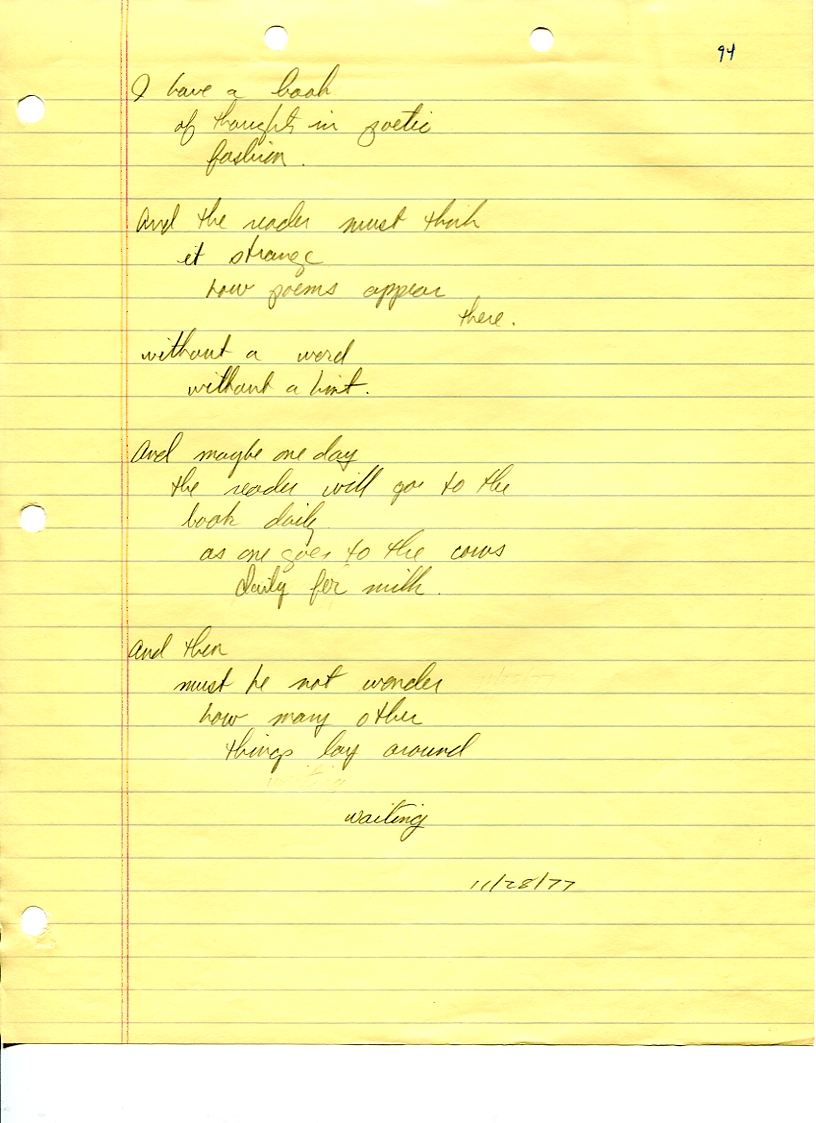 94
I have a book
of thoughts in poetic
fashion.
And the reader must think
it strange
how poems appear
there.
without a word
without a hint.
And maybe one day
the reader will go to the
book daily
as one goes to the cows
daily for milk.
And then
must he not wonder
how many other
things lay around
waiting
11/28/77